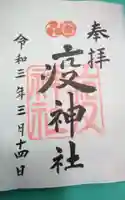 奉拝
疫神社
令和三年三月十四日